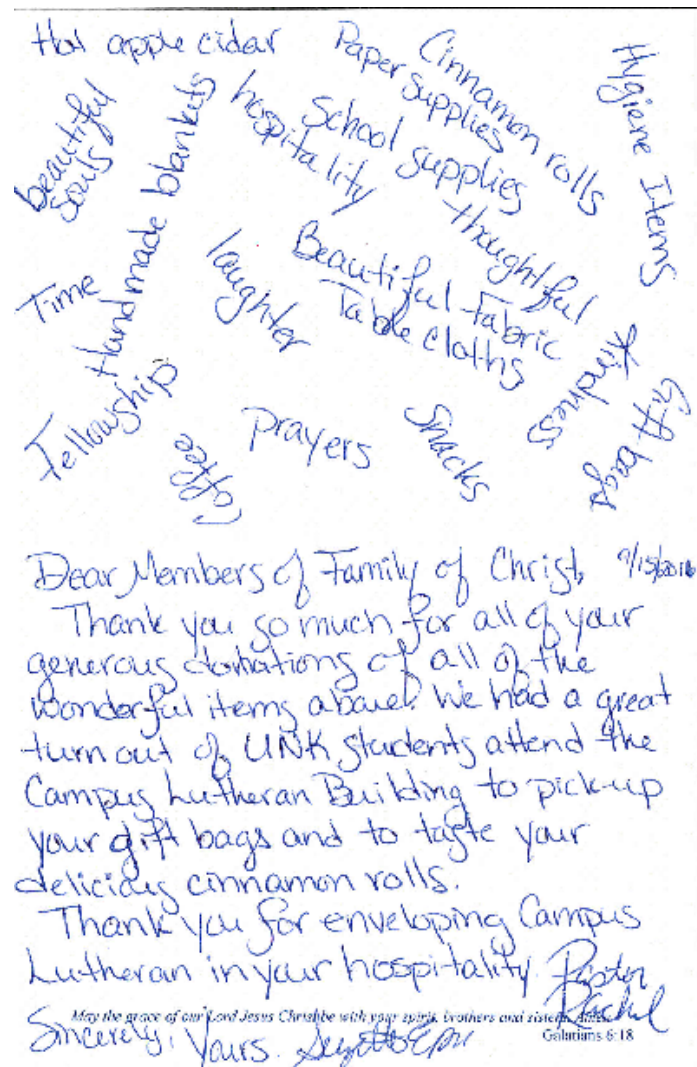 Hot apple cidar
Paper supplies
Cinnamon rolls
Hygiene Items
beautiful souls
Handmade blankets
hospitality
School supplies
thoughtful
Time
laughter
Beautiful Fabric
Table cloths
kindness
Gift bags
Fellowship
Coffee
prayers
Snacks
Dear Members of Family of Christ, 9/15/2016
Thank you so much for all of your
generous donations of all of the
wonderful items above. We had a great
turn out of UNK students attend the
Campus Lutheran Building to pick-up
your gift bags and to taste your
delicious cinnamon rolls.
Thank you for enveloping Campus
Lutheran in your hospitality. Pastor
Rachel
May the grace of our Lord Jesus Christ be with your spirit, brothers and sisters. Amen.
Galatians 6:18
Sincerely, Yours.